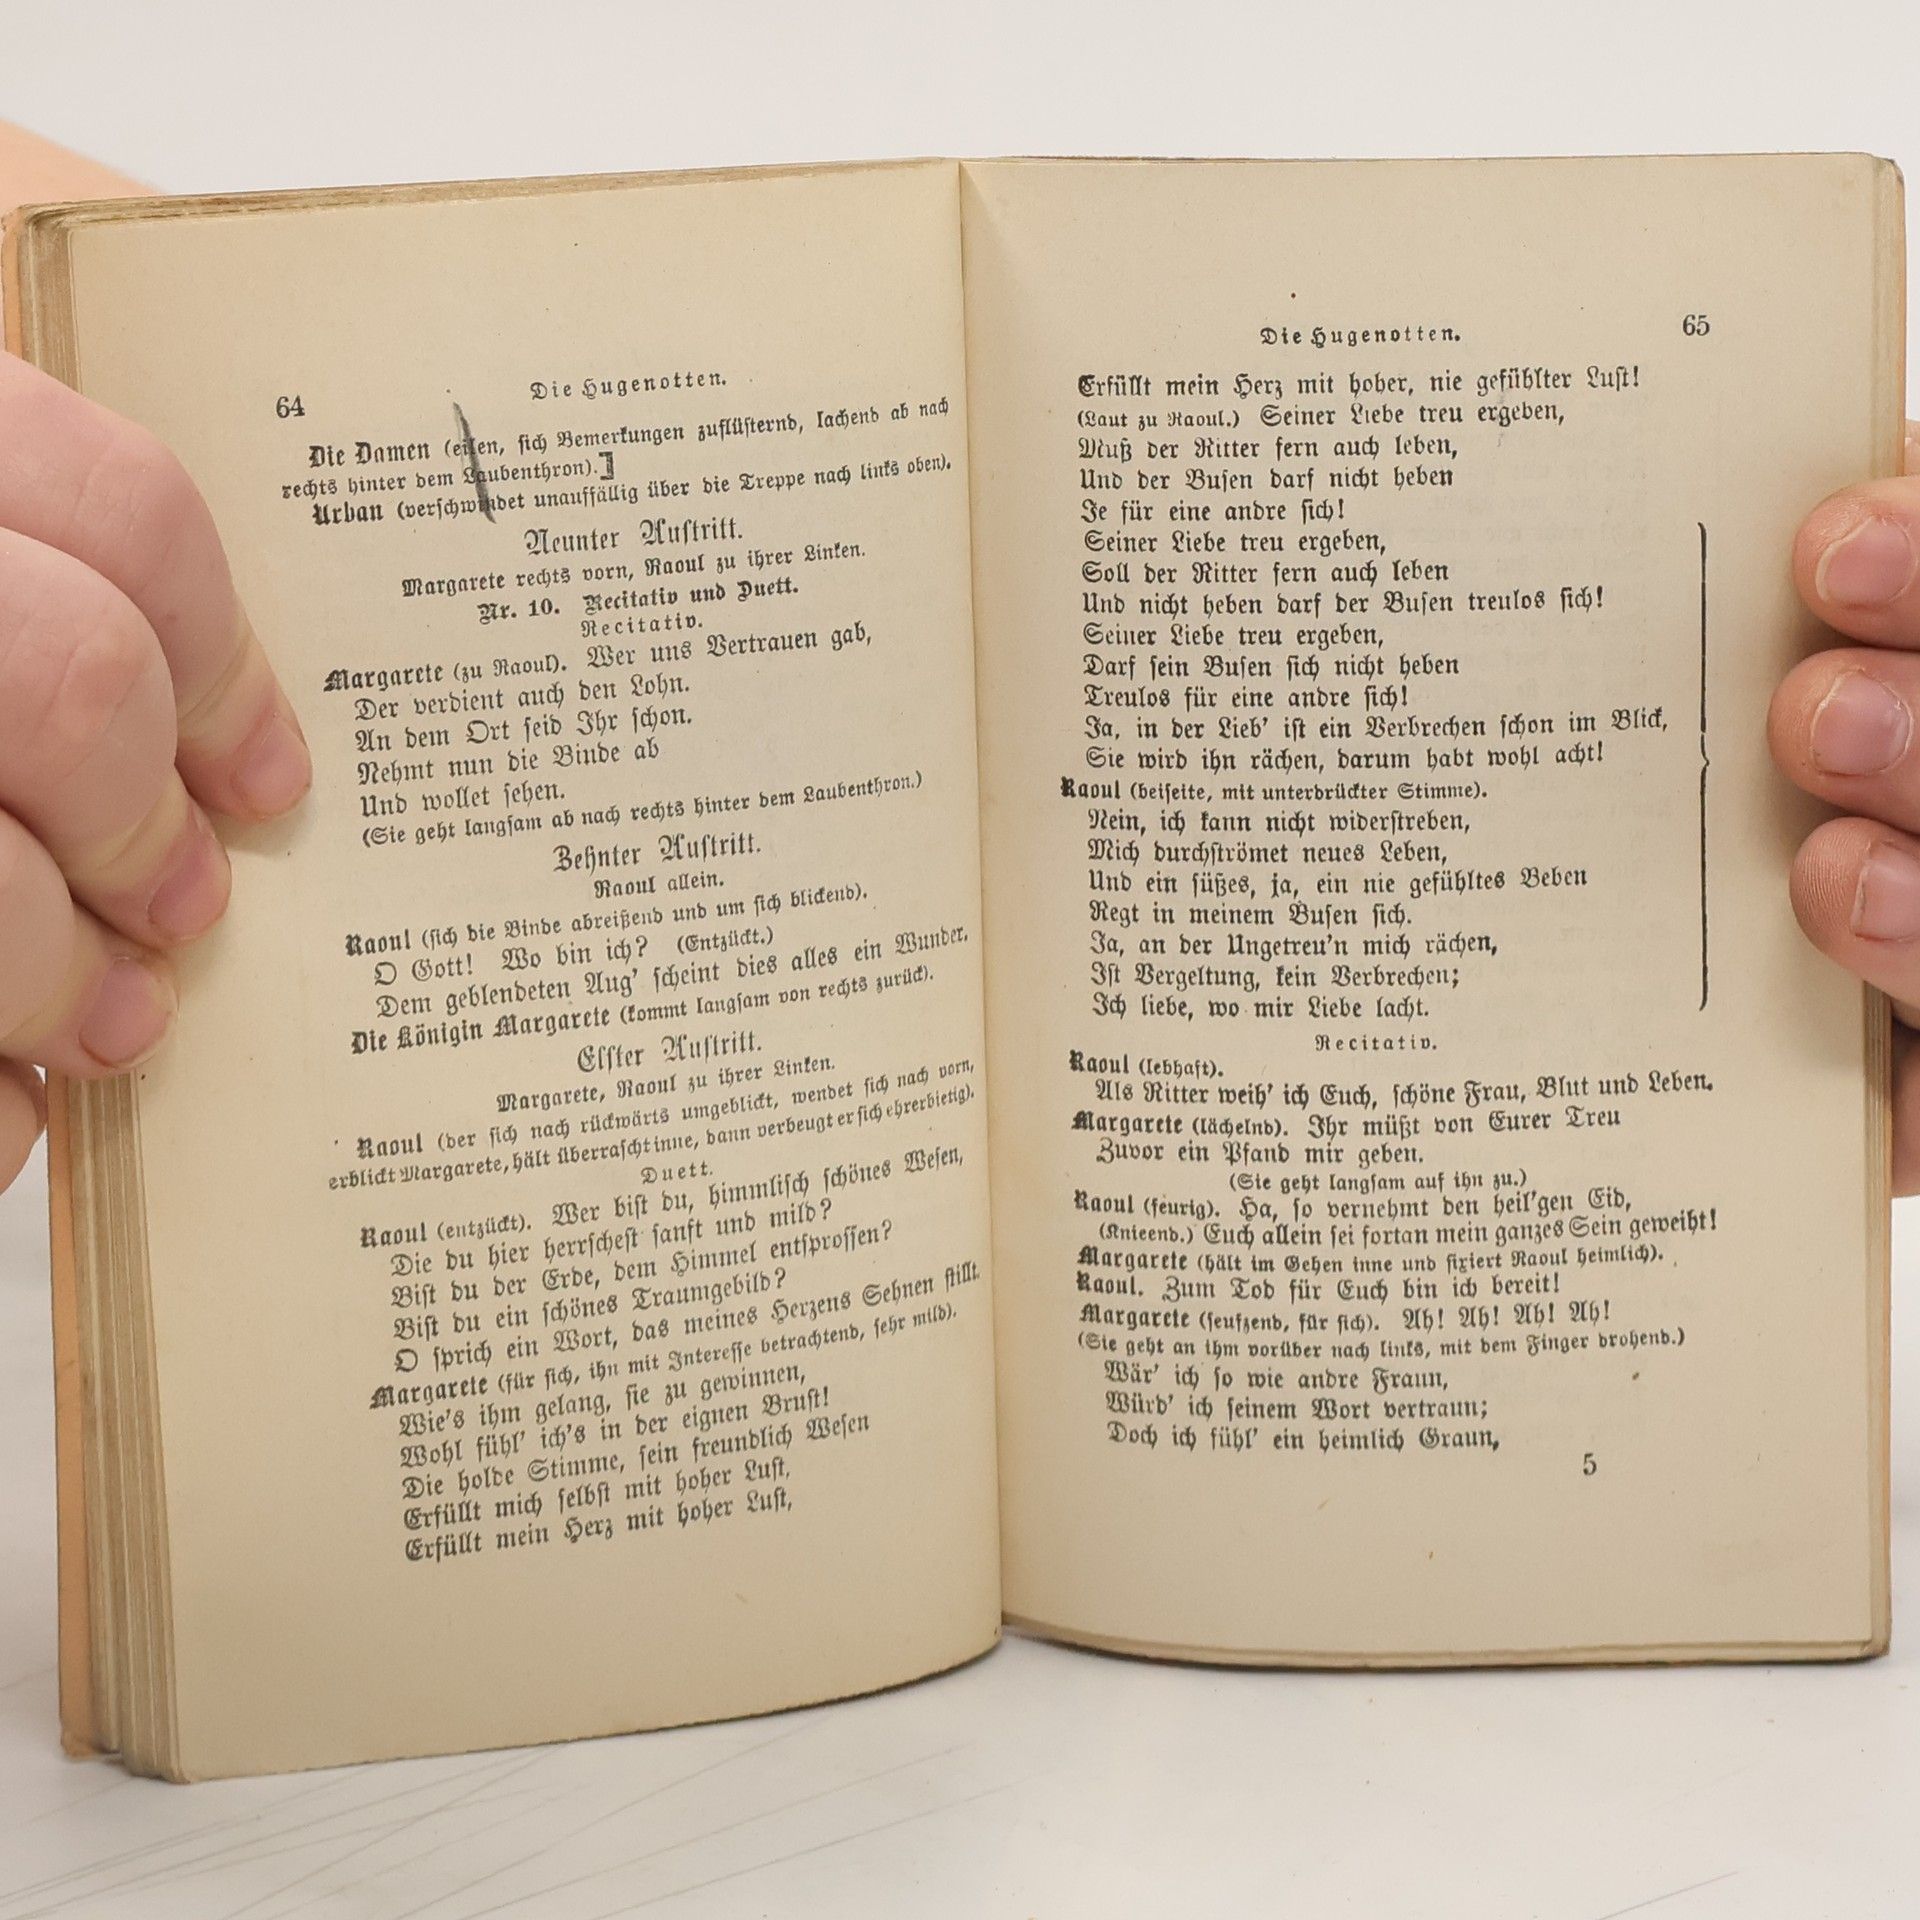 64
Die Hugenotten.
Die Damen (eilen, sich Bemerkungen zuflüsternd, lachend ab nach
rechts hinter dem Laubenthron).]
Urban (verschwindet unauffällig über die Treppe nach links oben).
Neunter Auftritt.
Margarete rechts vorn, Raoul zu ihrer Linken.
Nr. 10. Recitativ und Duett.
Recitativ.
Margarete (zu Raoul). Wer uns Vertrauen gab,
Der verdient auch den Lohn.
An dem Ort seid Ihr schon.
Nehmt nun die Binde ab
Und wollet sehen.
(Sie geht langsam ab nach rechts hinter dem Laubenthron.)
Zehnter Auftritt.
Raoul allein.
Raoul (sich die Binde abreißend und um sich blickend).
O Gott! Wo bin ich? (Entzückt.)
Dem geblendeten Aug' scheint dies alles ein Wunder.
Die Königin Margarete (kommt langsam von rechts zurück).
Elfter Auftritt.
Margarete, Raoul zu ihrer Linken.
Raoul (der sich nach rückwärts umgeblickt, wendet sich nach vorn,
erblickt Margarete, hält überrascht inne, dann verbeugt er sich ehrerbietig).
Duett.
Raoul (entzückt). Wer bist du, himmlisch schönes Wesen,
Die du hier herrschest sanft und mild?
Bist du der Erde, dem Himmel entsprossen?
Bist du ein schönes Traumgebild?
O sprich ein Wort, das meines Herzens Sehnen stillt.
Margarete (für sich, ihn mit Interesse betrachtend, sehr mild).
Wie's ihm gelang, sie zu gewinnen,
Wohl fühl' ich's in der eignen Brust!
Die holde Stimme, sein freundlich Wesen
Erfüllt mich selbst mit hoher Lust,
Erfüllt mein Herz mit hoher Lust,
Die Hugenotten.
65
Erfüllt mein Herz mit hoher, nie gefühlter Lust!
(Laut zu Raoul.) Seiner Liebe treu ergeben,
Muß der Ritter fern auch leben,
Und der Busen darf nicht heben
Je für eine andre sich!
Seiner Liebe treu ergeben,
Soll der Ritter fern auch leben
Und nicht heben darf der Busen treulos sich!
Seiner Liebe treu ergeben,
Darf sein Busen sich nicht heben
Treulos für eine andre sich!
Ja, in der Lieb' ist ein Verbrechen schon im Blick,
Sie wird ihn rächen, darum habt wohl acht!
Raoul (beiseite, mit unterdrückter Stimme).
Nein, ich kann nicht widerstreben,
Mich durchströmet neues Leben,
Und ein süßes, ja, ein nie gefühltes Beben
Regt in meinem Busen sich.
Ja, an der Ungetreu'n mich rächen,
Ist Vergeltung, kein Verbrechen;
Ich liebe, wo mir Liebe lacht.
Recitativ.
Raoul (lebhaft).
Als Ritter weih' ich Euch, schöne Frau, Blut und Leben.
Margarete (lächelnd). Ihr müßt von Eurer Treu
Zuvor ein Pfand mir geben.
(Sie geht langsam auf ihn zu.)
Raoul (feurig). Ha, so vernehmt den heil'gen Eid,
(Knieend.) Euch allein sei fortan mein ganzes Sein geweiht!
Margarete (hält im Gehen inne und fixiert Raoul heimlich).
Raoul. Zum Tod für Euch bin ich bereit!
Margarete (seufzend, für sich). Ah! Ah! Ah! Ah!
(Sie geht an ihm vorüber nach links, mit dem Finger drohend.)
Wär' ich so wie andre Fraun,
Würd' ich seinem Wort vertraun;
Doch ich fühl' ein heimlich Graun,
5